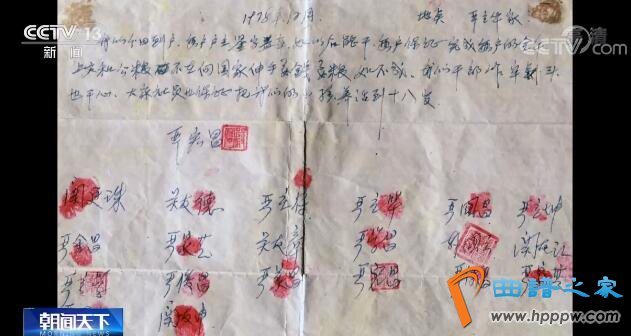 CCTV 13
新闻
CCTV
1978年12月 地点 严立华家
我们分田到户,每户户主签字盖章,如以后能干,每户保证完成每户的全年
上交和公粮,不在向国家伸手要钱要粮,如不成,我们干部作牢刹头
也干心,大家社员也保证把我们的小孩养活到十八岁
严宏昌
关廷珠 关友德 严立符 严立华 严国昌 严立坤
严金昌 严家芝 关友章 严学昌 关友江
严立学 严俊昌 严美昌
朝闻天下
曲谱之家